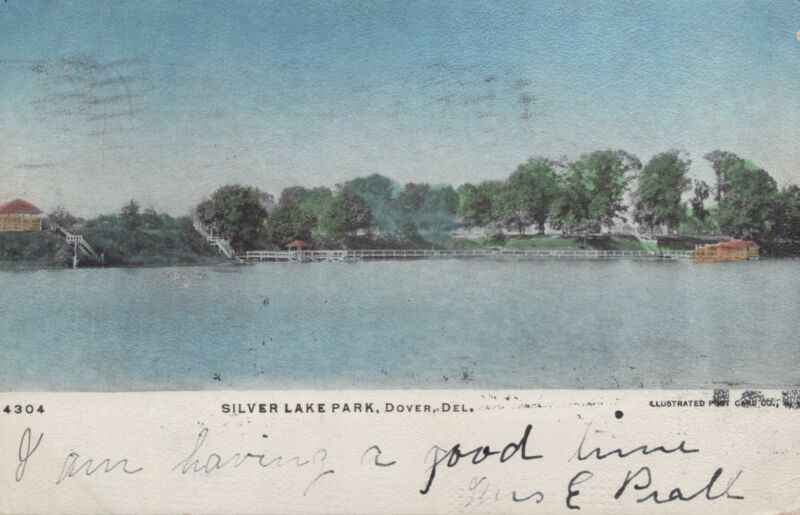 4304
SILVER LAKE PARK, DOVER, DEL.
ILLUSTRATED POST CARD CO., N.Y.
I am having a good time
Mrs E Pratt